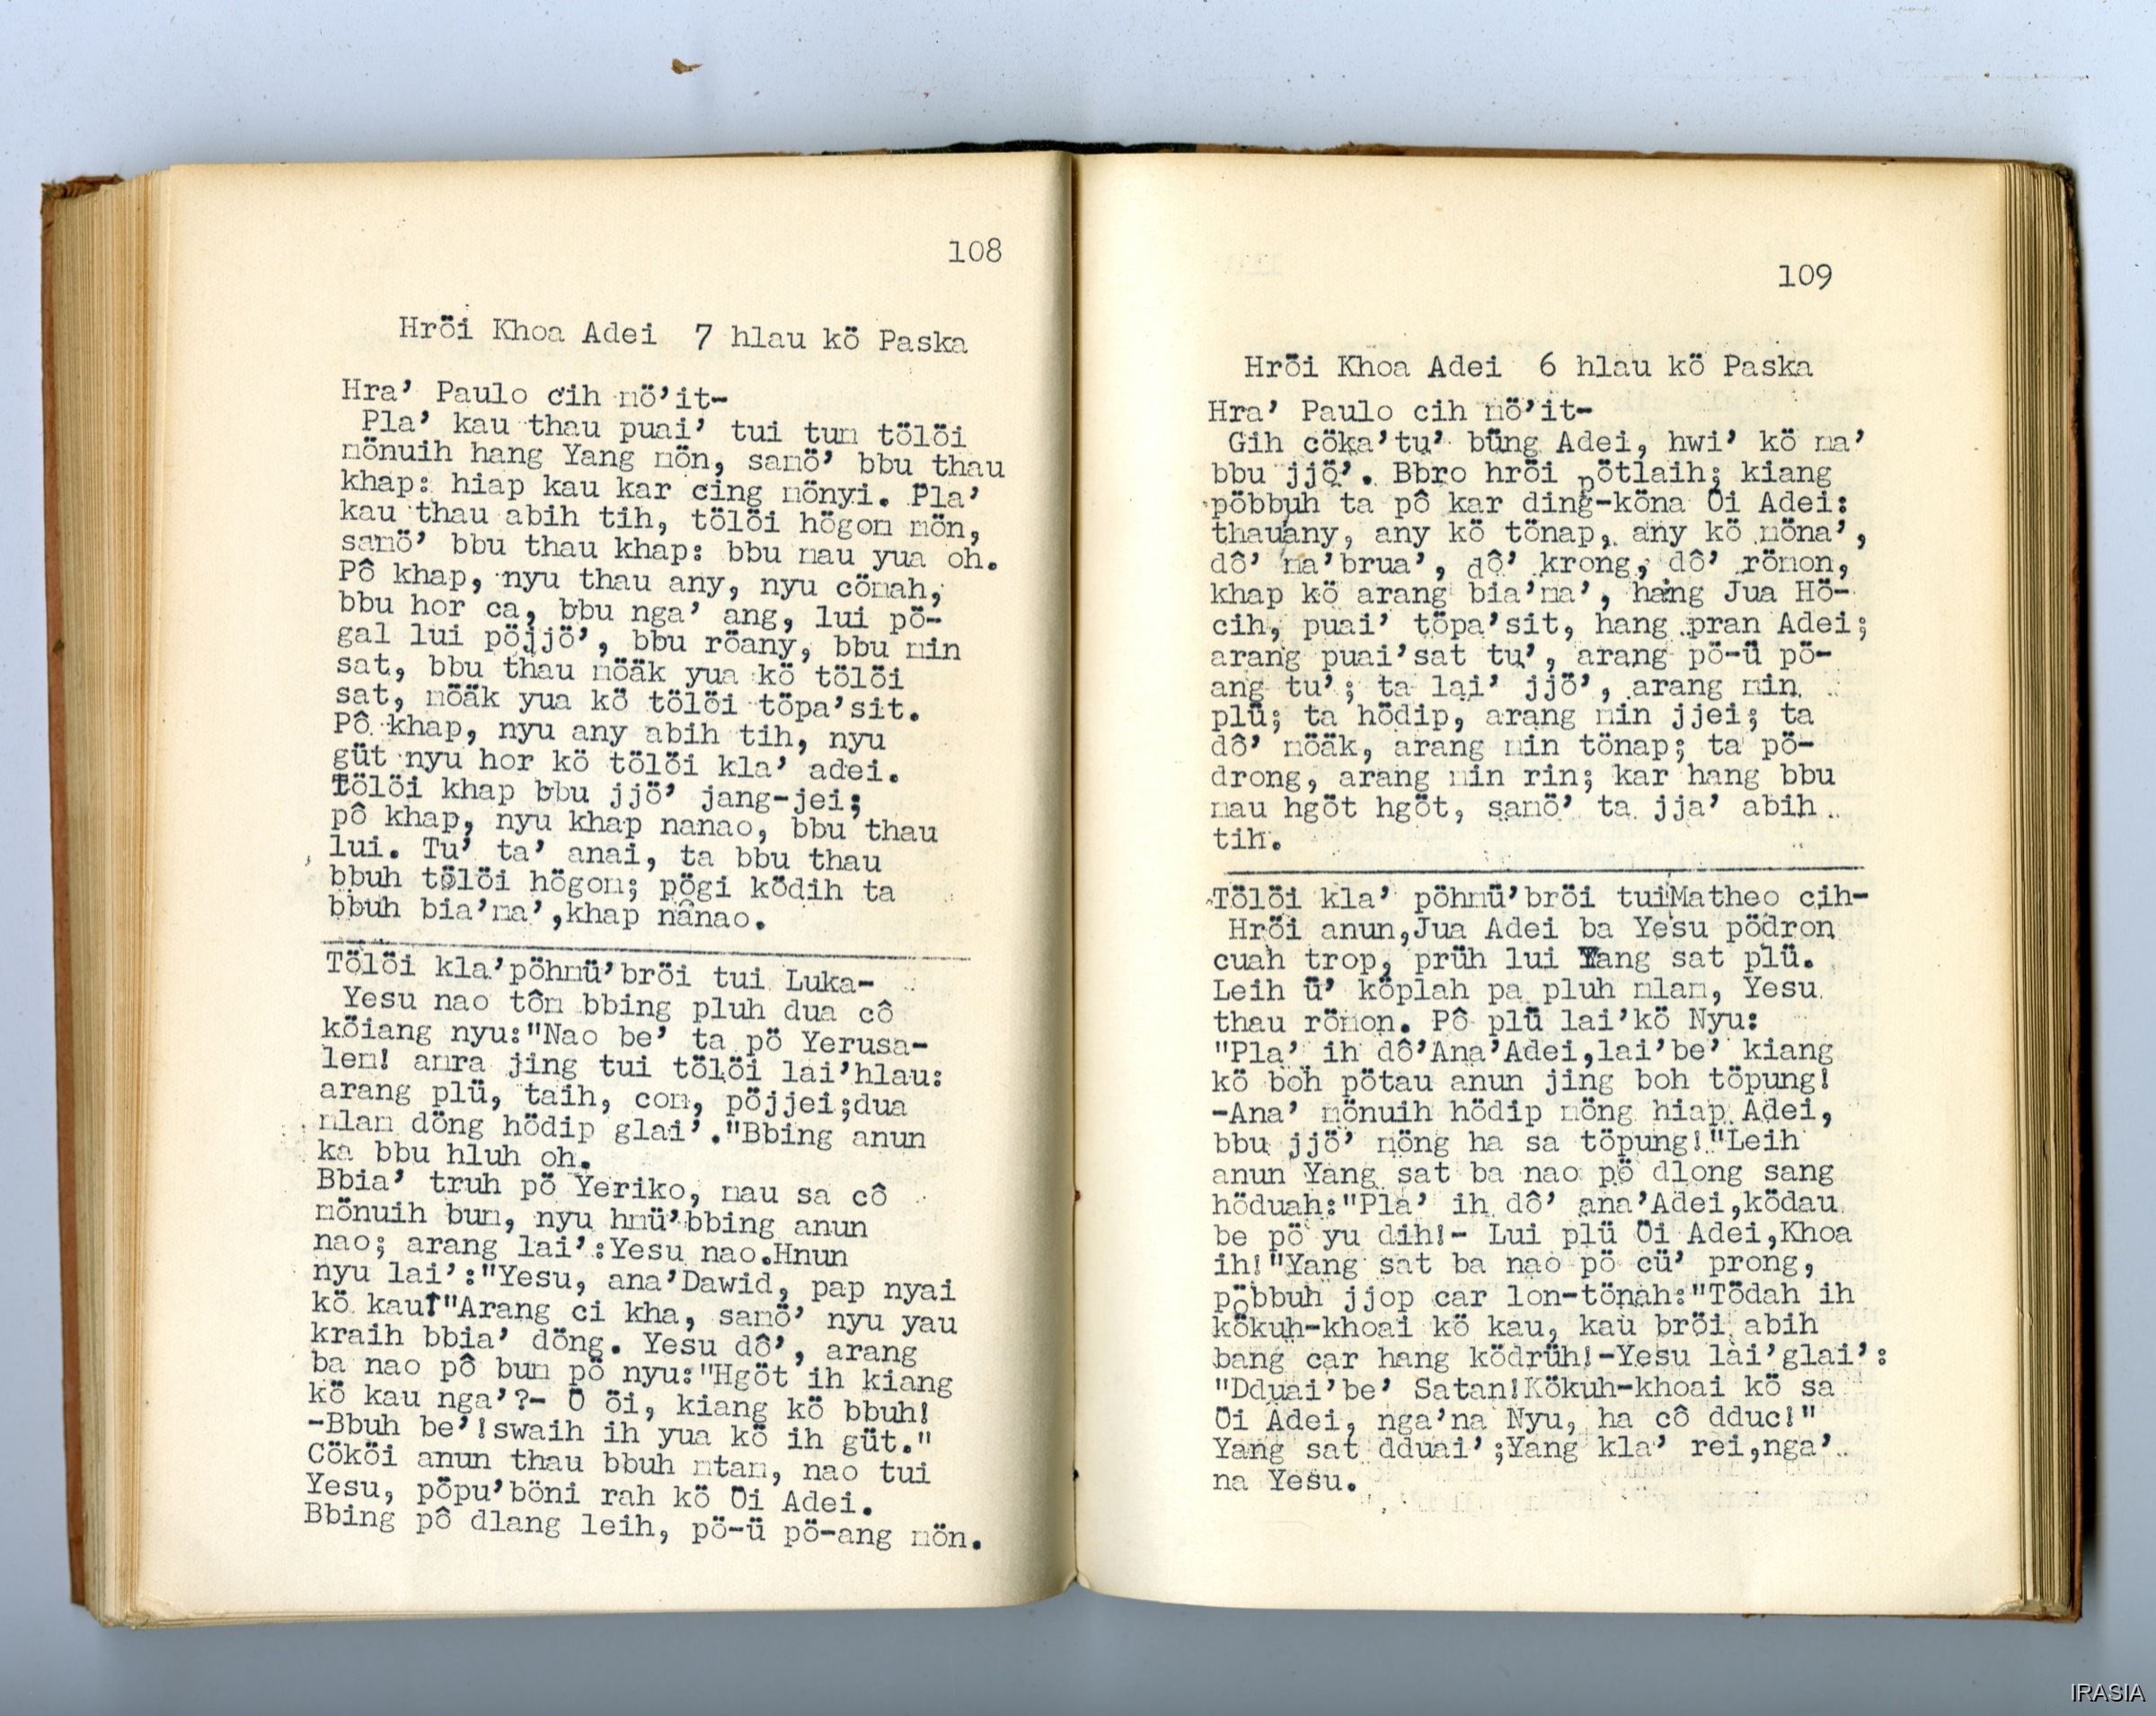 108
Hröi Khoa Adei 7 hlau kö Paska
Hra’ Paulo cih mö’it-
Pla’ kau thau puai’ tui tum tölöi
mönuih hang Yang mön, samö’ bbu thau
khap: hiap kau kar cing mönyi. Pla’
kau thau abih tih, tölöi högom mön,
samö’ bbu thau khap: bbu mau yua oh.
Pô khap, nyu thau any, nyu cömah,
bbu hor ca, bbu nga’ ang, lui pö-
gal lui pöjjö’, bbu röany, bbu min
sat, bbu thau möäk yua kö tölöi
sat, möäk yua kö tölöi töpa’sit.
Pô khap, nyu any abih tih, nyu
güt nyu hor kö tölöi kla’ adei.
Tölöi khap bbu jjö’ jang-jei;
pô khap, nyu khap nanao, bbu thau
lui. Tu’ ta’ anai, ta bbu thau
bbuh tölöi högom; pögi ködih ta
bbuh bia’ma’,khap nânao.
Tölöi kla’pöhmü’bröi tui Luka-
Yesu nao tôm bbing pluh dua cô
köiang nyu:"Nao be’ ta pö Yerusa-
lem! amra jing tui tölöi lai’hlau:
arang plü, taih, com, pöjjei;dua
mlam döng hödip glai’."Bbing anun
ka bbu hluh oh.
Bbia’ truh pö Yeriko, mau sa cô
mönuih bum, nyu hmü’bbing anun
nao; arang lai’:Yesu nao.Hnun
nyu lai’:"Yesu, ana’Dawid, pap nyai
kö kau!"Arang ci kha, samö’ nyu yau
kraih bbia’ döng. Yesu dô’, arang
ba nao pô bum pö nyu:"Hgöt ih kiang
kö kau nga’?- Ö öi, kiang kö bbuh!
-Bbuh be’!swaih ih yua kö ih güt."
Cököi anun thau bbuh mtam, nao tui
Yesu, pöpu’böni rah kö Öi Adei.
Bbing pô dlang leih, pö-ü pö-ang mön.
109
Hröi Khoa Adei 6 hlau kö Paska
Hra’ Paulo cih mö’it-
Gih cöka’tu’ büng Adei, hwi’ kö ma’
bbu jjö’. Bbro hröi pötlaih; kiang
pöbbuh ta pô kar ding-köna Öi Adei:
thau any, any kö tönap, any kö möna’,
dô’ ma’brua’, dô’ krong, dô’ römon,
khap kö arang bia’ma’, hang Jua Hö-
cih, puai’ töpa’sit, hang pran Adei;
arang puai’sat tu’, arang pö-ü pö-
ang tu’; ta lai’ jjö’, arang min
plü; ta hödip, arang min jjei; ta
dô’ möäk, arang min tönap; ta pö-
drong, arang min rin; kar hang bbu
mau hgöt hgöt, samö’ ta jja’ abih
tih.
Tölöi kla’ pöhmü’bröi tui Matheo cih-
Hröi anun,Jua Adei ba Yesu pödron
cuah trop, prüh lui Yang sat plü.
Leih ü’ köplah pa pluh mlam, Yesu
thau römon. Pô plü lai’kö Nyu:
"Pla’ ih dô’Ana’Adei,lai’be’ kiang
kö boh pötau anun jing boh töpung!
-Ana’ mönuih hödip möng hiap Adei,
bbu jjö’ möng ha sa töpung!"Leih
anun Yang sat ba nao pö dlong sang
höduah:"Pla’ ih dô’ ana’Adei,ködau
be pö yu dih!- Lui plü Öi Adei,Khoa
ih!"Yang sat ba nao pö cü’ prong,
pöbbuh jjop car lon-tönah:"Tödah ih
kökuh-khoai kö kau, kau bröi abih
bang car hang ködrüh!-Yesu lai’glai’:
"Dduai’be’ Satan!Kökuh-khoai kö sa
Öi Adei, nga’na Nyu, ha cô dduc!"
Yang sat dduai’;Yang kla’ rei,nga’
na Yesu.
IRASIA